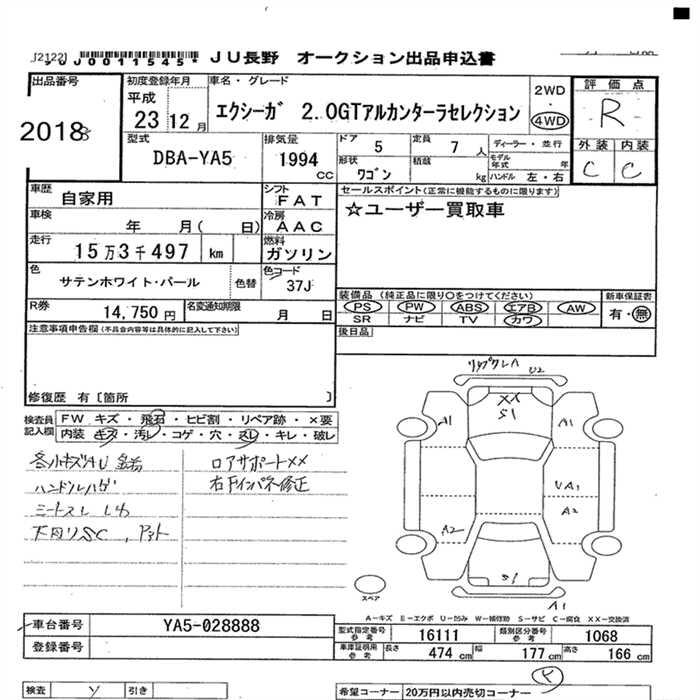 [2122]
*JUJ0011545* JU長野 オークション出品申込書
出品番号 初度登録年月 車名・グレード 2WD 評価点
2018 平成 23 12月 エクシーガ 2.0GTアルカンターラセレクション 4WD R
型式 排気量 ドア 定員 ディーラー・並行 外装 内装
DBA-YA5 1994 CC 5 7人 モデル年式 年 C C
形状 積載
ワゴン kg ハンドル 左・右
車歴 シフト セールスポイント(正常に機能するものに限ります)
自家用 FAT ☆ユーザー買取車
車検 年 月( 日) 冷房 AAC
走行 15万3千497 km 燃料 ガソリン
色 サテンホワイト・パール 色替 色コード 37J
装備品(純正品に限り○をつけてください) 新車保証書
R券 14,750円 名変通知期限 月 日 PS PW ABS エアB AW 有・無
SR ナビ TV カワ
注意事項申告欄(不具合内容等は具体的に記入して下さい) 後日品
修復歴 有〔箇所 〕
検査員記入欄 FW キズ・飛石・ヒビ割・リペア跡・×要
内装 キズ・汚レ・コゲ・穴・スレ・キレ・破レ
ロアサポートXX
ハンドルハゲ 右Fインパネ修正
U2
XX
S1
A1 A1
UA1
A2 A2
S1
A1
スペア
A-キズ E-エクボ U-凹み W-補修跡 S-サビ C-腐食 XX-交換済
車台番号 YA5-028888
型式指定番号参考 16111 類別区分番号参考 1068
登録番号
車庫証明用参考 長さ 474cm 幅 177cm 高さ 166cm
検査 Y 引き 希望コーナー 20万円以内売切コーナー Y